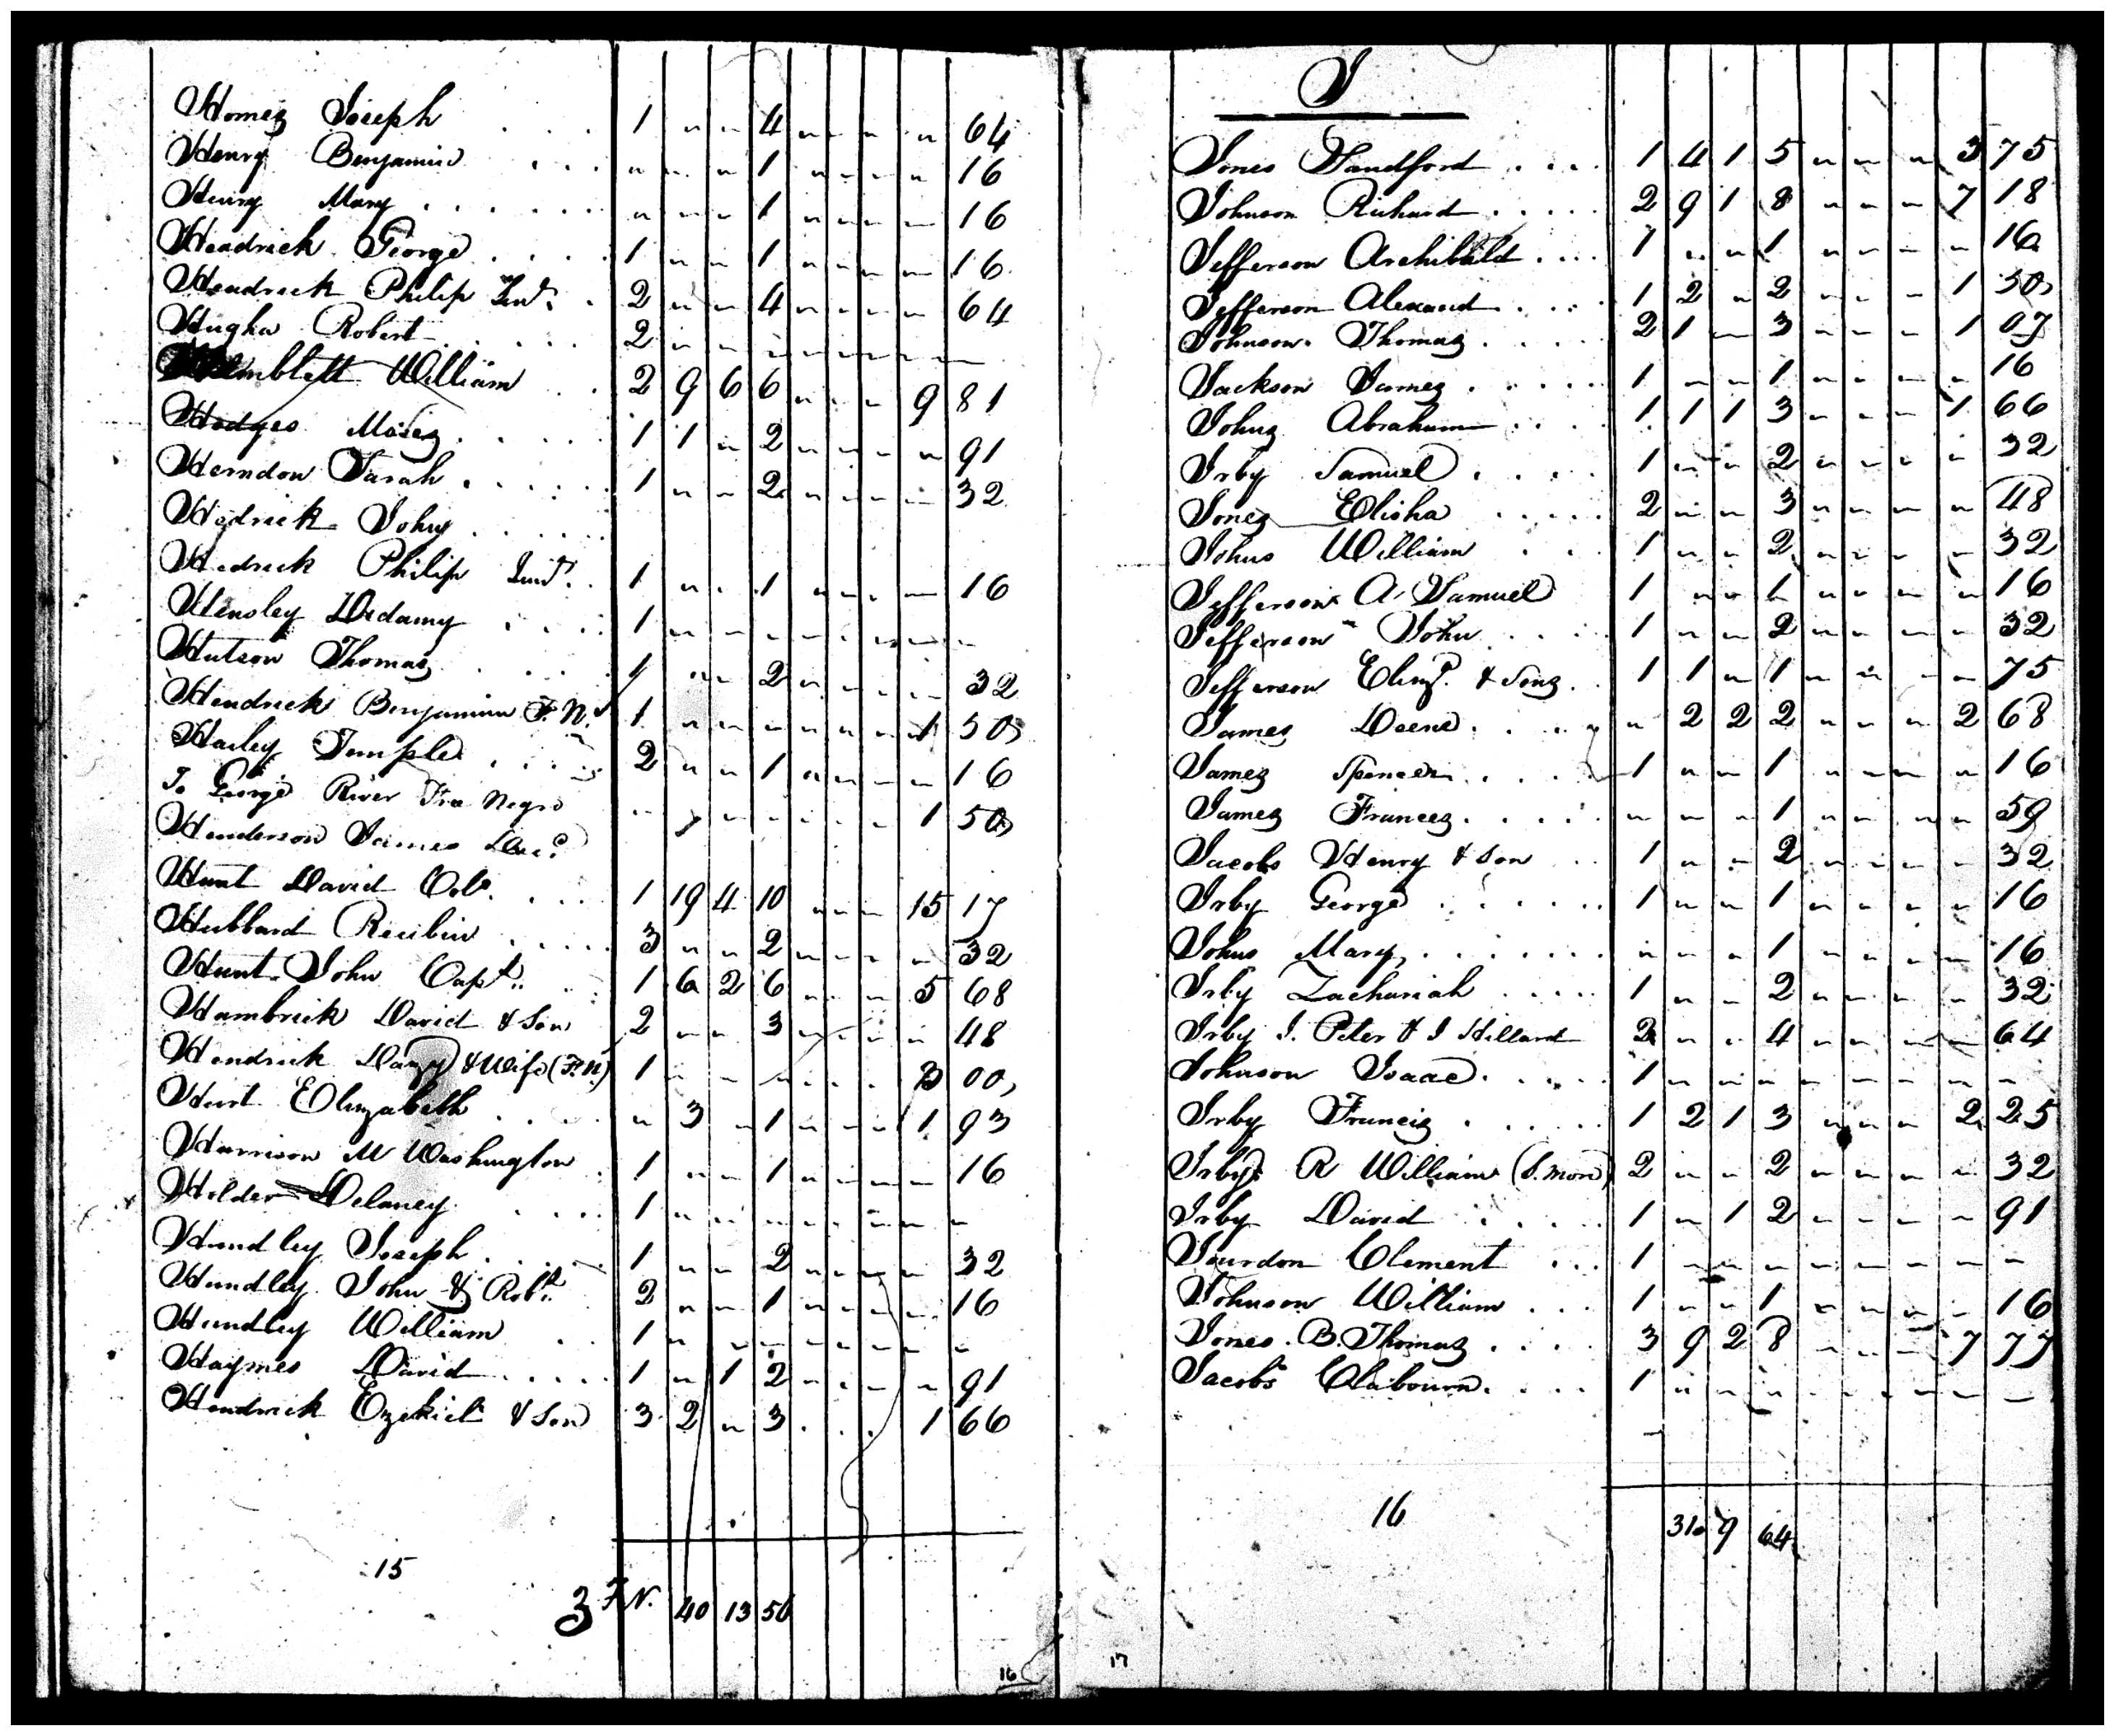 Homes Joseph . . . 1 " " 4 " " " " 64
Henry Benjamin . . . " " " 1 " " " " 16
Henry Mary . . . . . . " " " 1 " " " " 16
Hendrick George . . . . 1 " " 1 " " " " 16
Hendrick Philip Senr. . 2 " " 4 " " " " 64
Hughs Robert . . . . . 2 " " " " " " " "
William . 2 9 6 6 " " " 9 81
Hodges Moses . . . . . 1 1 " 2 " " " " 91
Herndon Sarah . . . . . . 1 " " 2 " " " " 32
Hedrick John . . . . . .
Hedrick Philip Junr. . 1 " " 1 " " " " 16
Hensley . . . . 1 " " " " " " " "
Hutson Thomas . . . . 1 " " 2 " " " " 32
Hendrick Benjamin F. N. 1 " " " " " " 1 50
Hailey Temple . . . . 2 " " 1 " " " " 16
To George River Free Negro " " " " " " " 1 50
Henderson James Decd.
Hunt David Col. . . . 1 19 4 10 " " " 15 17
Hubbard Reubin . . . . . 3 " " 2 " " " " 32
Hunt John Capt. . . 1 6 2 6 " " " 5 68
Hambrick David & Son 2 " " 3 " " " " 48
Hendrick & Wife (F. N.) 1 " " " " " " 3 00
Hurt Elizabeth . . . . " 3 " 1 " " " 1 93
Harrison M Washington . 1 " " 1 " " " " 16
Holder Delaney . . . . 1 " " " " " " " "
Hundley Joseph . . . . 1 " " 2 " " " " 32
Hundley John & Robt. 2 " " 1 " " " " 16
Hundley William . . 1 " " " " " " " "
Haymes David . . . . . 1 " 1 2 " " " " 91
Hendrick Ezekiel & Son 3 2 " 3 . . . 1 66
15
3 F. N. 40 13 56
16
J
Jones Sandford . . . . 1 4 1 5 " " " 3 75
Johnson Richard . . . . . 2 9 1 8 " " " 7 18
Jefferson Archibald . . . . 1 " " 1 " " " " 16
Jefferson Alexand . . . . 1 2 " 2 " " " 1 50
Johnson Thomas . . . . . 2 1 " 3 " " " 1 07
Jackson James . . . . . 1 " " 1 " " " " 16
Johns Abraham . . . . 1 1 1 3 " " " 1 66
Irby Samuel . . . . 1 " " 2 " " " " 32
Jones Elisha . . . . . 2 " " 3 " " " " 48
Johns William . . 1 " " 2 " " " " 32
Jefferson A. Samuel 1 " " 1 " " " " 16
Jefferson John . . . . 1 " " 2 " " " " 32
Jefferson & Sons . . 1 1 " 1 " " " " 75
James . . . . " 2 2 2 " " " 2 68
James Spencer . . . . 1 " " 1 " " " " 16
James Frances . . . . . " " " 1 " " " " 59
Jacobs Henry & Son . . 1 " " 2 " " " " 32
Irby George . . . . . . 1 " " 1 " " " " 16
Johns Mary . . . . . . . " " " 1 " " " " 16
Irby Zachariah . . . . . 1 " " 2 " " " " 32
Irby J. Peter & J Hillard 2 " " 4 " " " " 64
Johnson Isaac . . . . . 1 " " " " " " " "
Irby Francis . . . . . 1 2 1 3 " " " 2 25
Irby R William 2 " " 2 " " " " 32
Irby David . . . . . 1 " 1 2 " " " " 91
Jourdon Clement . . . 1 " " " " " " " "
Johnson William . . . 1 " " 1 " " " " 16
Jones B. Thomas . . . . 3 9 2 8 " " " 7 77
Jacobs Clabourn . . . . 1 " " " " " " " "
16
31 9 64
17